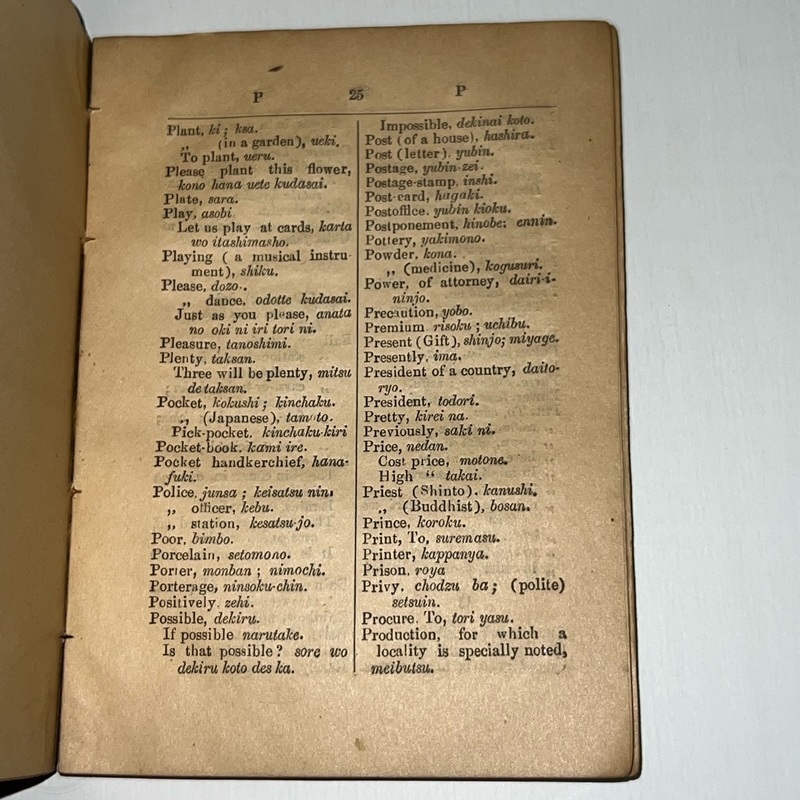 P 25 P
Plant, ki ; ksa.
„ (in a garden), ueki.
To plant, ueru.
Please plant this flower,
kono hana uete kudasai.
Plate, sara.
Play, asobi
Let us play at cards, karta
wo itashimasho.
Playing ( a musical instru-
ment), shiku.
Please, dozo.
„ dance, odotte kudasai.
Just as you please, anata
no oki ni iri tori ni.
Pleasure, tanoshimi.
Plenty, taksan.
Three will be plenty, mitsu
de taksan.
Pocket, kokushi ; kinchaku.
„ (Japanese), tamoto.
Pick-pocket. kinchaku-kiri
Pocket-book. kami ire.
Pocket handkerchief, hana-
fuki.
Police, junsa ; keisatsu nin.
„ officer, kebu.
„ station, kesatsu-jo.
Poor, bimbo.
Porcelain, setomono.
Porter, monban ; nimochi.
Porterage, ninsoku-chin.
Positively. zehi.
Possible, dekiru.
If possible narutake.
Is that possible? sore wo
dekiru koto des ka.
Impossible, dekinai koto.
Post (of a house), hashira.
Post (letter). yubin.
Postage, yubin-zei.
Postage-stamp, inshi.
Post-card, hagaki.
Postoffice. yubin kioku.
Postponement, hinobe; ennin.
Pottery, yakimono.
Powder, kona.
„ (medicine), kogusuri.
Power, of attorney, dairi-i-
ninjo.
Precaution, yobo.
Premium risoku ; uchibu.
Present (Gift), shinjo; miyage.
Presently, ima.
President of a country, daito-
ryo.
President, todori.
Pretty, kirei na.
Previously, saki ni.
Price, nedan.
Cost price, motone.
High “ takai.
Priest (Shinto), kanushi.
„ (Buddhist), bosan.
Prince, koroku.
Print, To, suremasu.
Printer, kappanya.
Prison, roya
Privy. chodzu ba; (polite)
setsuin.
Procure. To, tori yasu.
Production, for which a
locality is specially noted,
meibutsu.